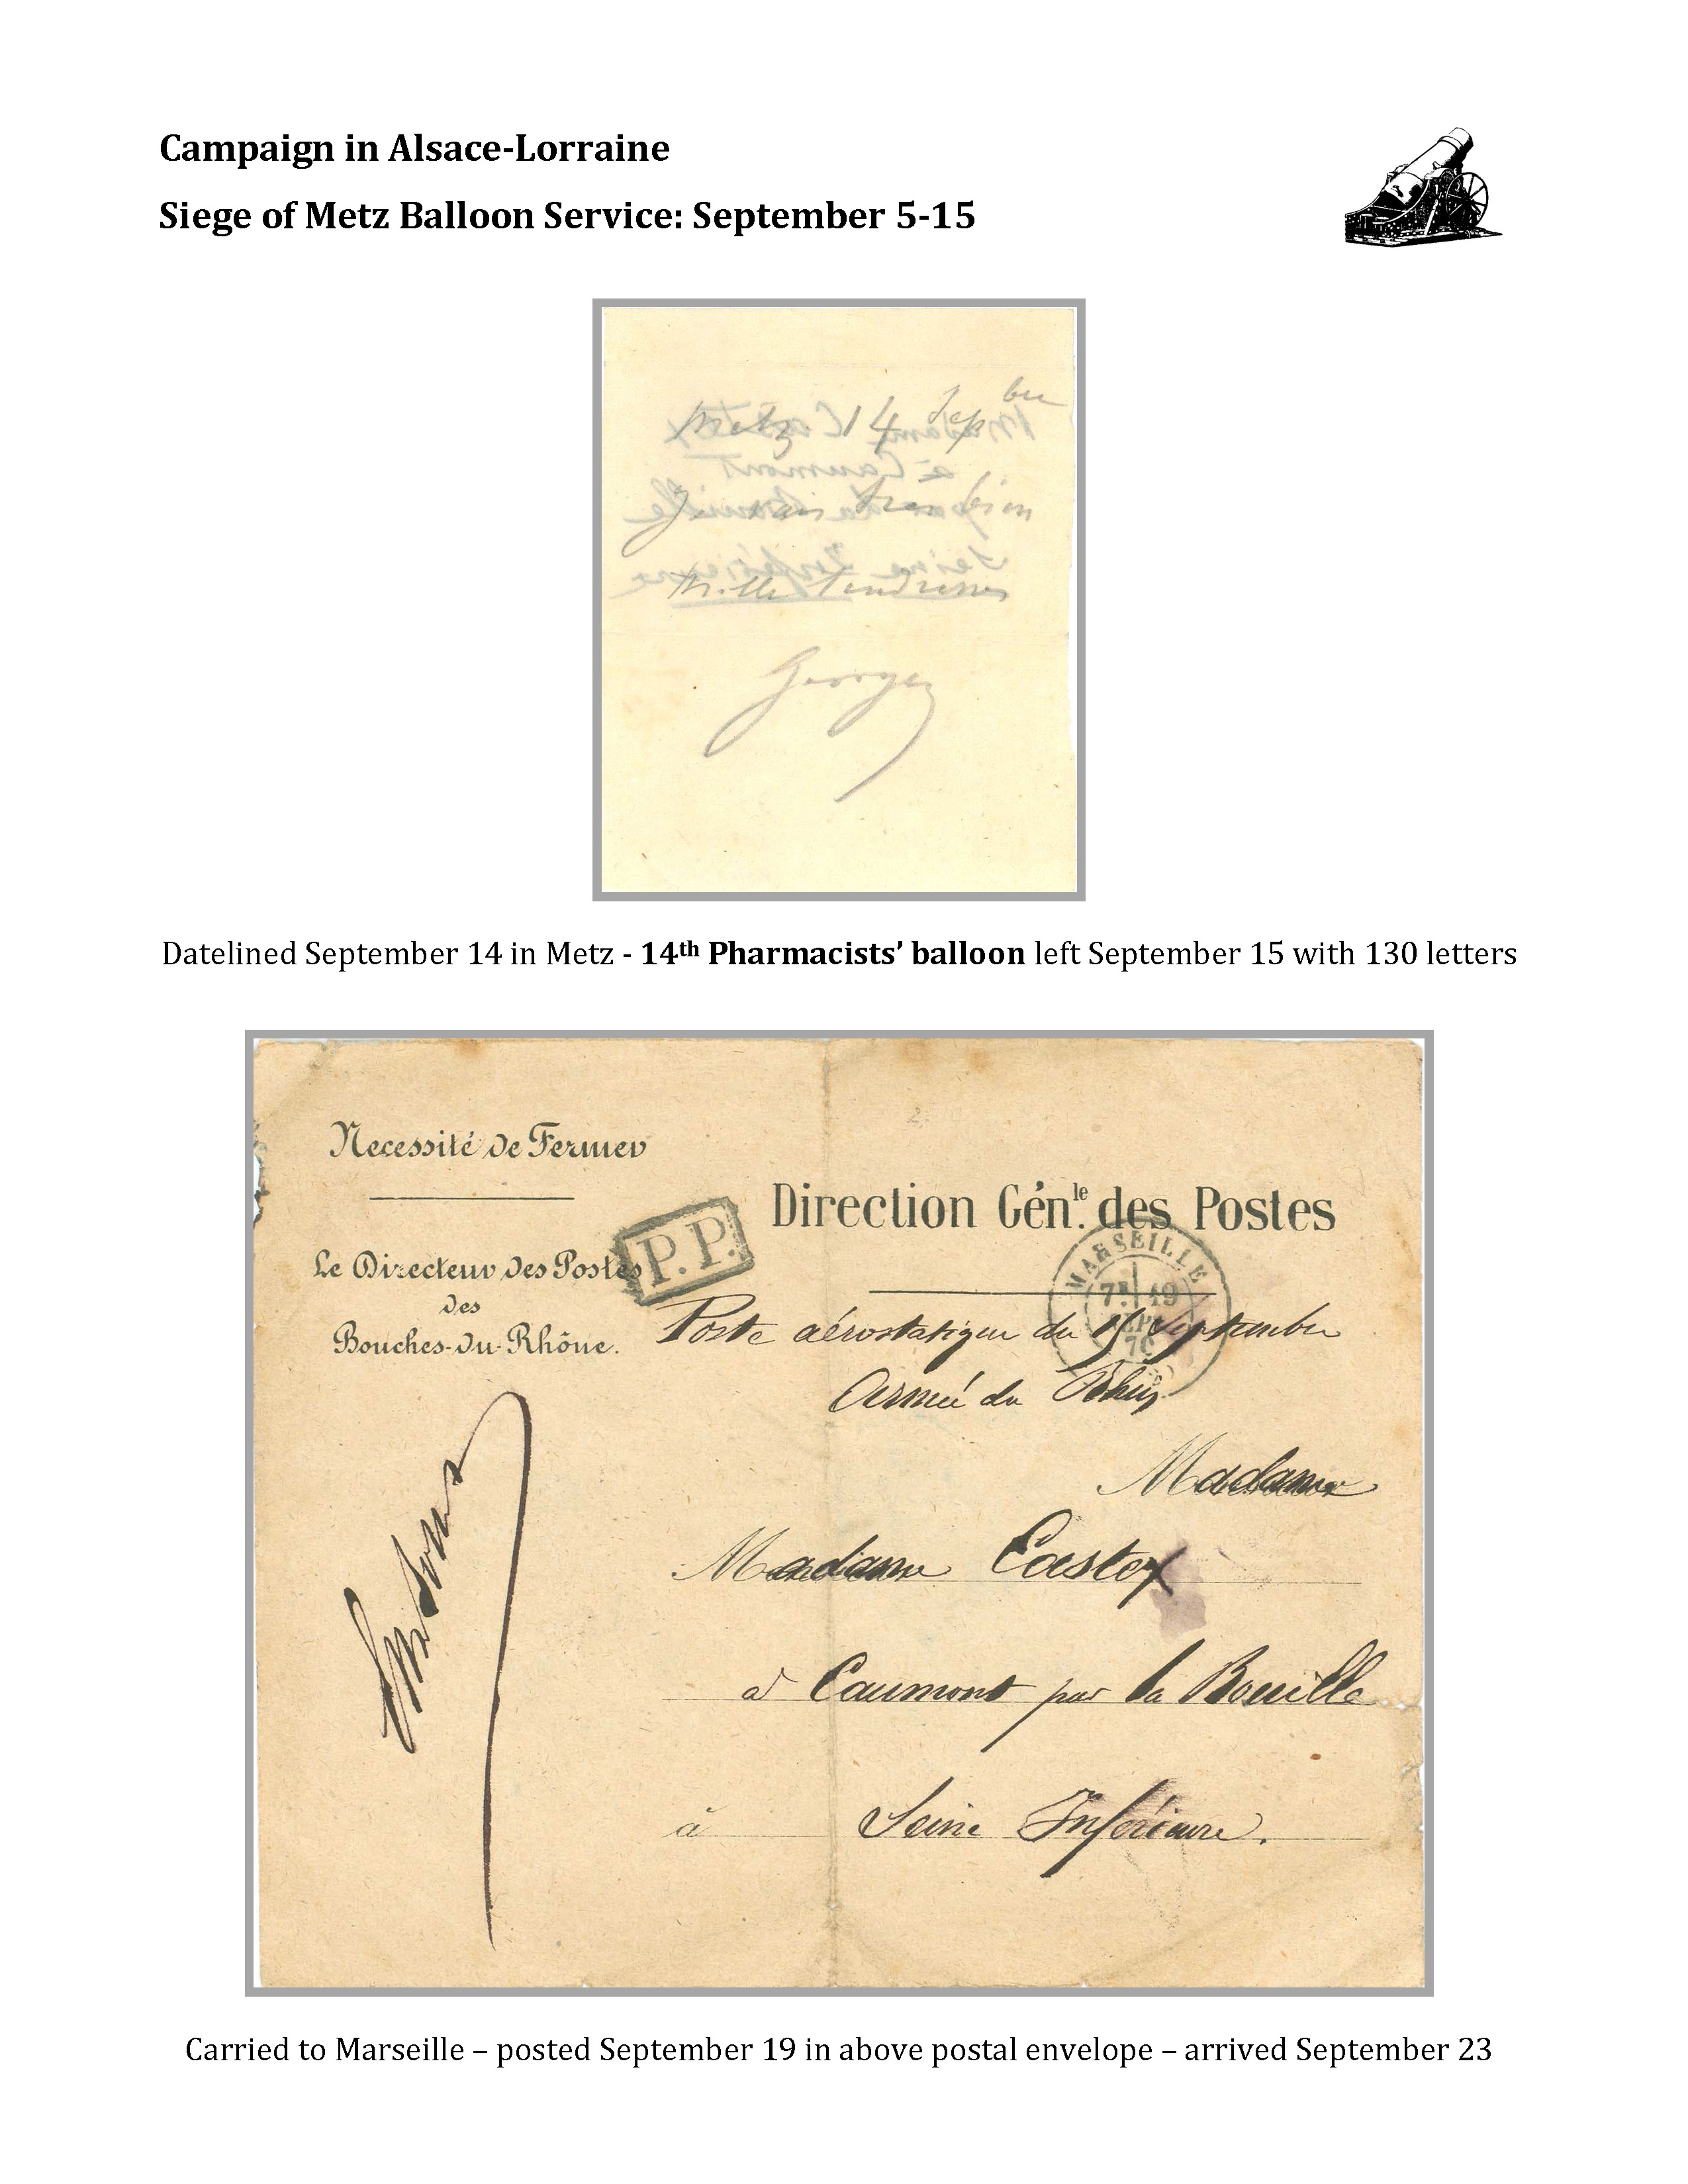 Campaign in Alsace-Lorraine
Siege of Metz Balloon Service: September 5-15
Metz 14 Sepbre
Je vais très bien
Mille tendresses
Georges
Madame Castex
à Caumont
par La Bouille
Seine Inférieure
Datelined September 14 in Metz - 14th Pharmacists’ balloon left September 15 with 130 letters
Necessité de Fermer
Direction Génle. des Postes
P.P.
MARSEILLE
19
SEPT
70
Le Directeur des Postes
des
Bouches-du-Rhône.
Poste aérostatique du 15 Septembre
Armée du Rhin
Madame
Madame Castex
à Caumont par la Bouille
à Seine Inférieure.
Carried to Marseille – posted September 19 in above postal envelope – arrived September 23